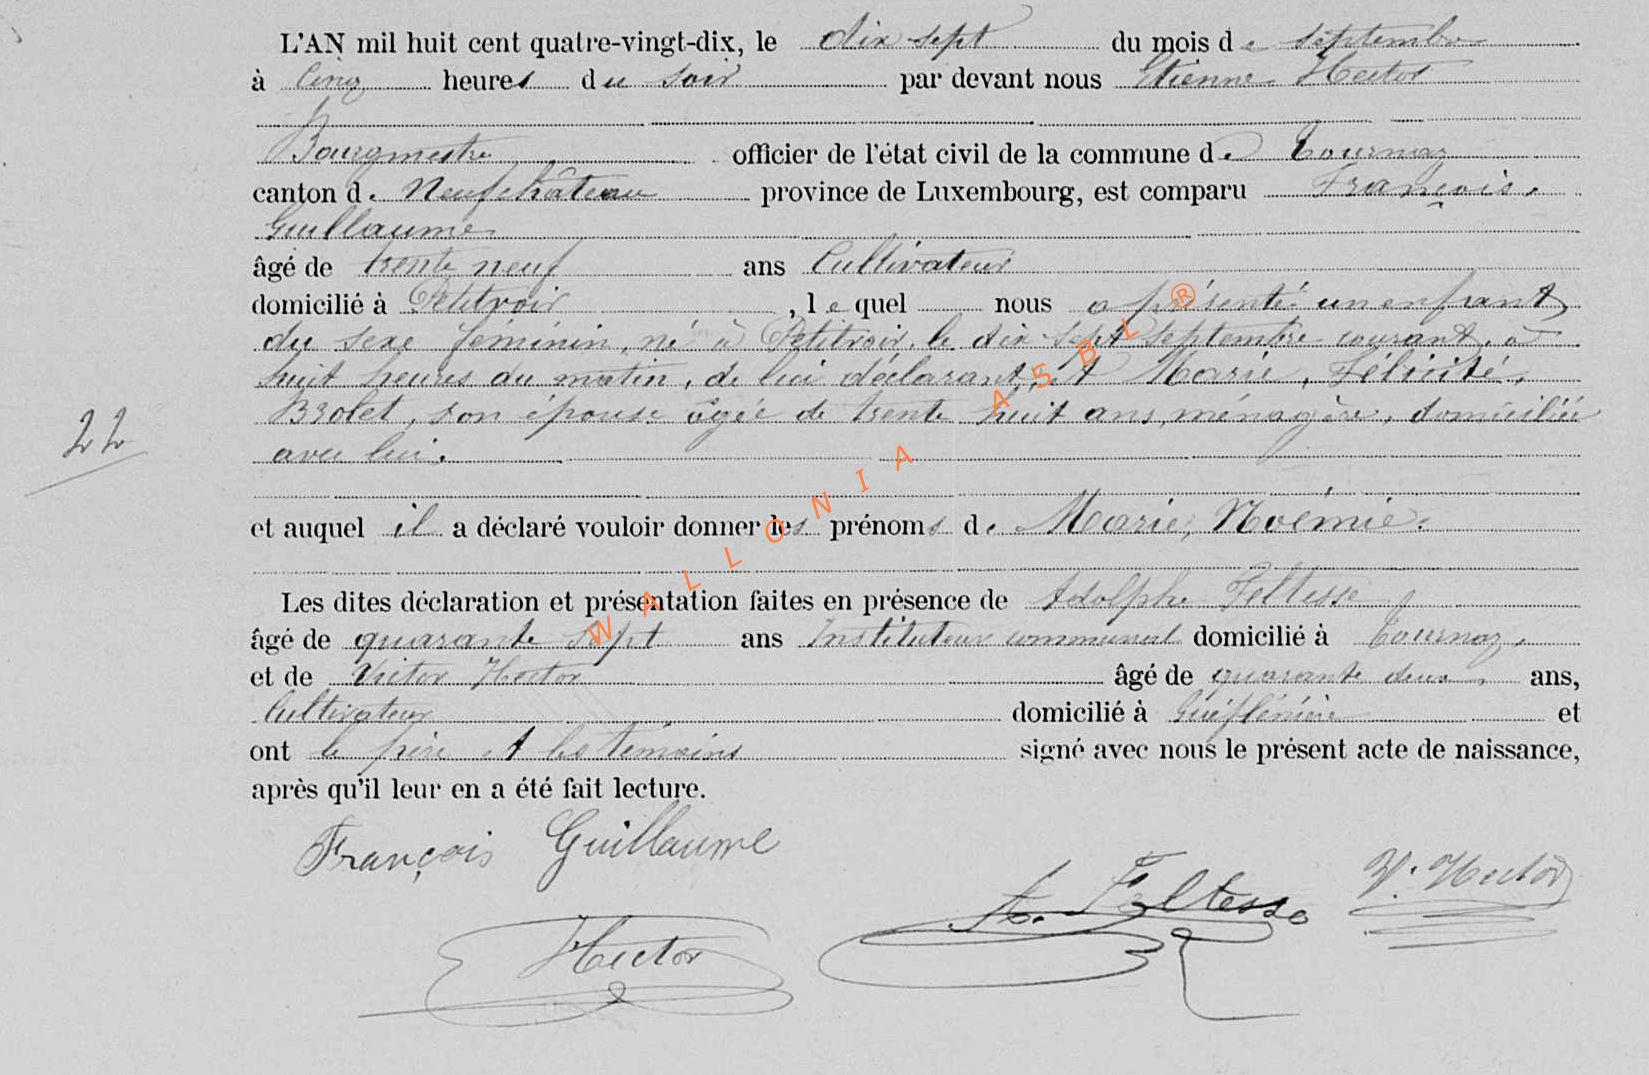 L'AN mil huit cent quatre-vingt-dix, le dix sept du mois de septembre
à cinq heures du soir par devant nous Etienne Hector
Bourgmestre officier de l'état civil de la commune de Tournay
canton de Neufchâteau province de Luxembourg, est comparu François,
Guillaume
âgé de trente neuf ans Cultivateur
domicilié à Petitvoir, lequel nous a présenté un enfant
du sexe féminin, né à Petitvoir, le dix sept septembre courant, à
huit heures du matin, de lui déclarant, et Marie, Félicité,
Brolet, son épouse âgée de trente huit ans, ménagère, domiciliée
22
avec lui.
et auquel il a déclaré vouloir donner les prénoms de Marie, Noémie.
Les dites déclaration et présentation faites en présence de Adolphe Feltesse
âgé de quarante sept ans Instituteur communal domicilié à Tournay,
et de Victor Hector âgé de quarante deux ans,
Cultivateur domicilié à et
ont le père et les témoins signé avec nous le présent acte de naissance,
après qu'il leur en a été fait lecture.
François Guillaume
A. Feltesse V. Hector
Hector
WALLONIA ASBL ®